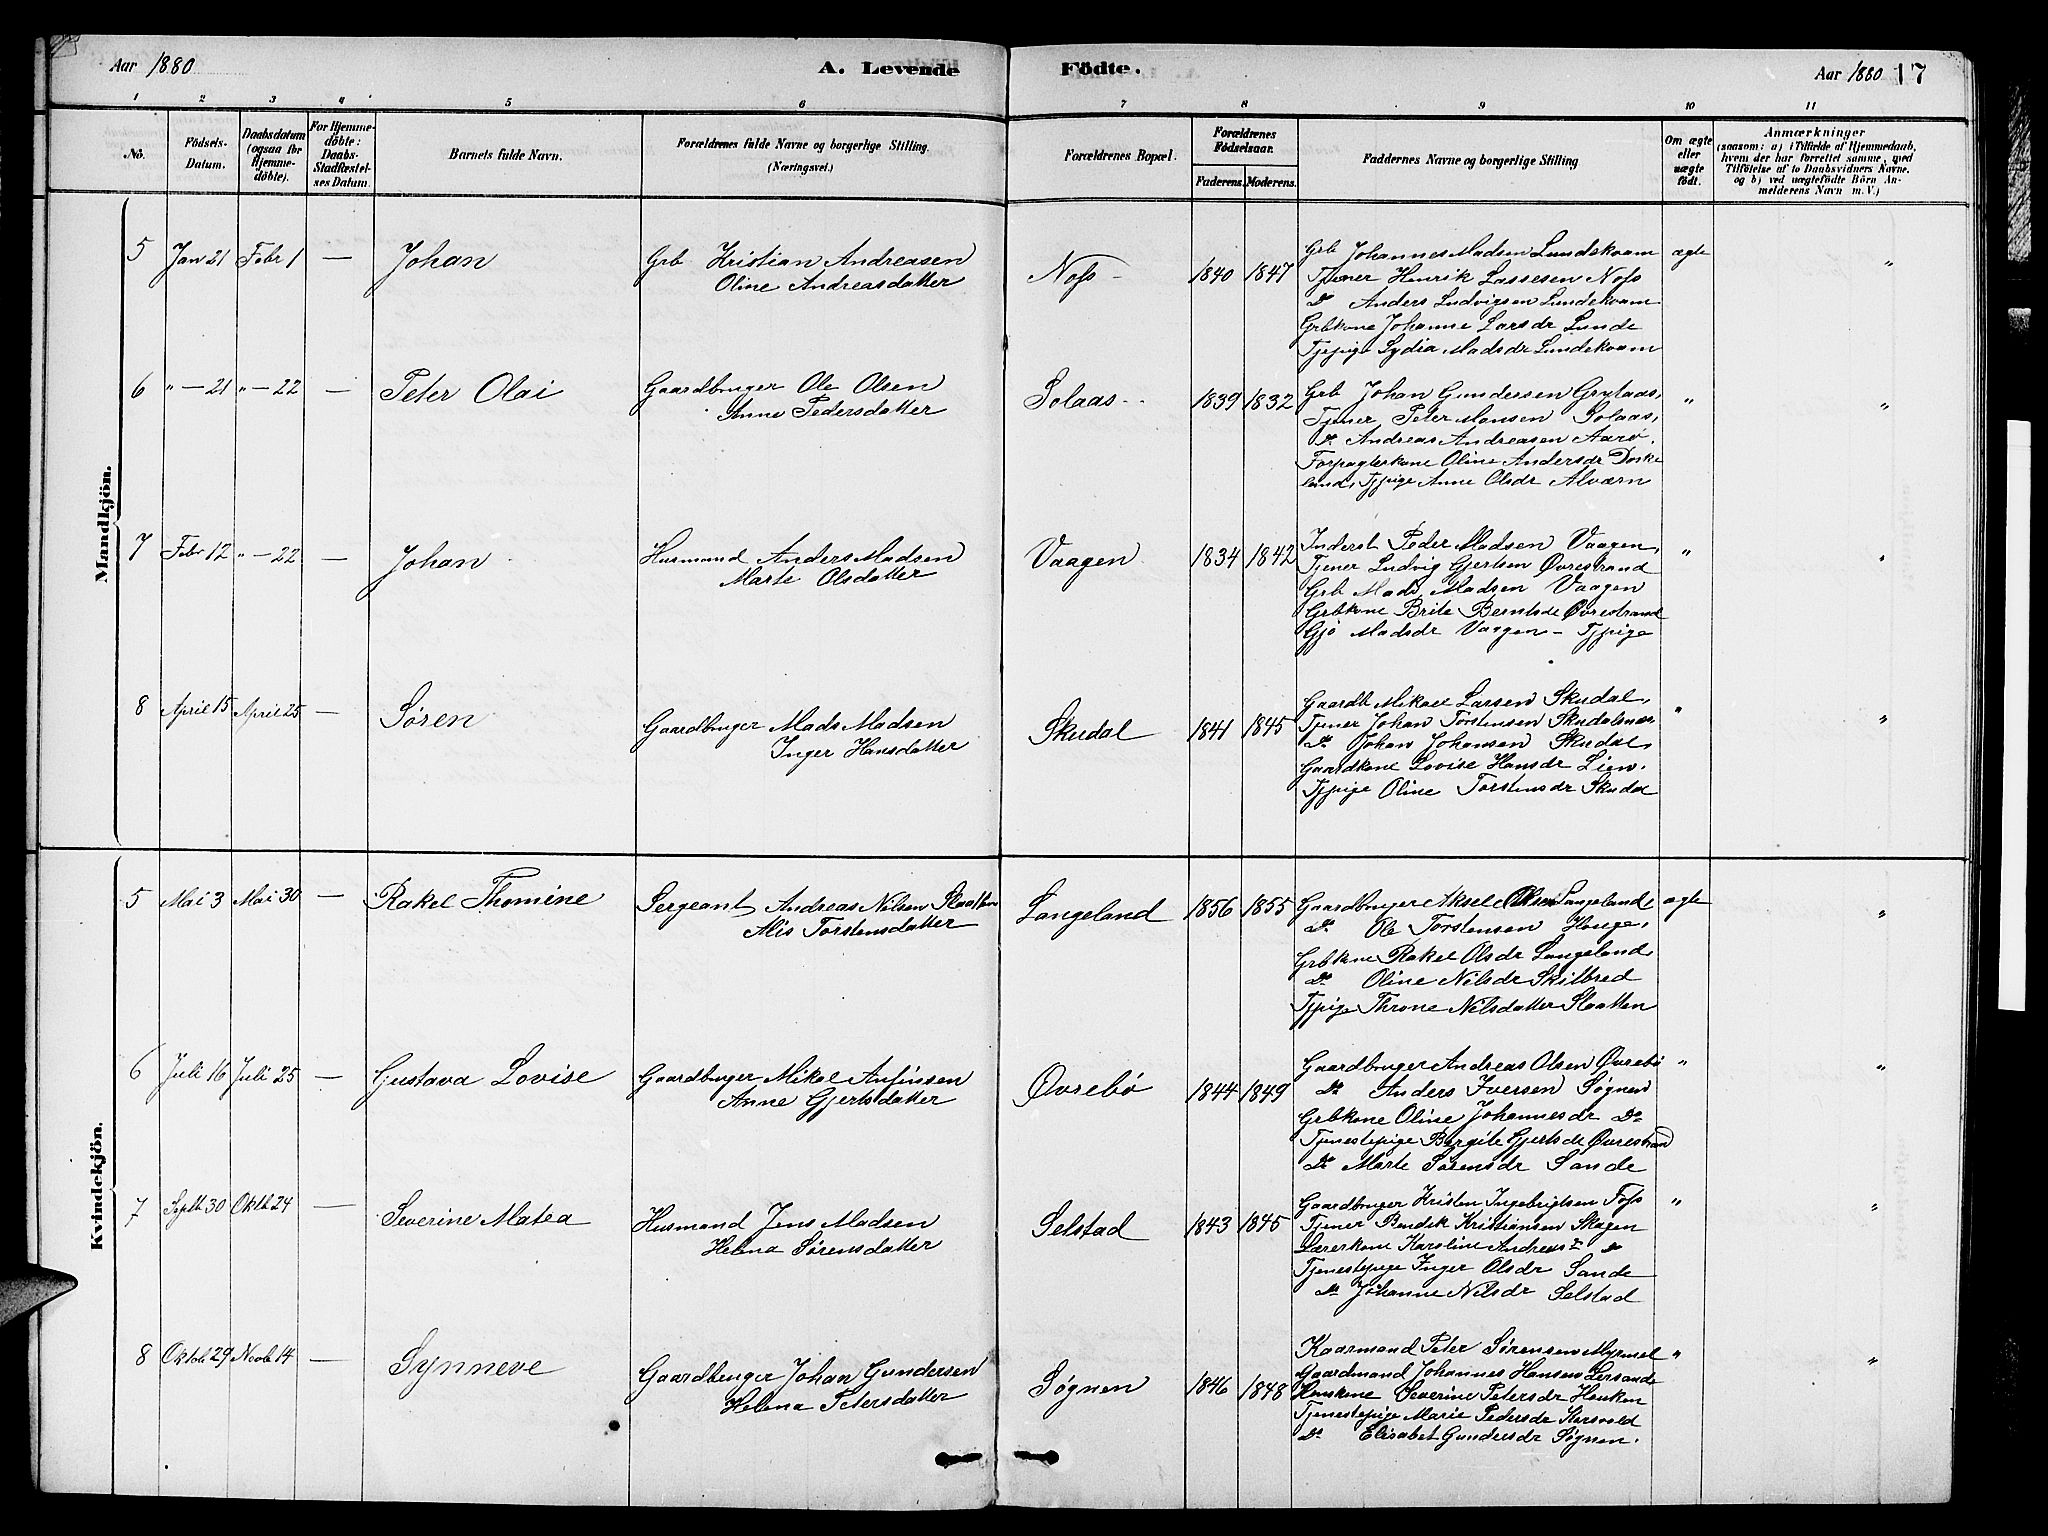 Aar 1880 A. Levende Födte. Aar 1880 17
1 2 3 4 5 6 7 8 9 10 11
No. Födsels-Datum. Daabsdatum (ogsaa for Hjemme-döbte). For Hjemme-döbte: Daabs-Stadfæstel-ses Datum. Barnets fulde Navn. Forældrenes fulde Navne og borgerlige Stilling. (Næringsvei.) Forældrenes Bopæl. Forældrenes Födselsaar. Faderens. Moderens. Faddernes Navne og borgerlige Stilling Om ægte eller uægte födt. Anmærkninger (saasom: a) i Tilfælde af Hjemmedaab, hvem der har forrettet samme, med Tilföielse af to Daabsvidners Navne, og b) ved uægtefödte Börn An-melderens Navn m. V.)
Mandkjön.
5 Jan 21 Febr 1 — Johan Grb Kristian Andreasen
Oline Andreasdatter
Nofs — 1840 1847
Grb Johannes Madsen Lundekvam ægte "
Tjener Henrik Lassesen Nofs
Do Anders Ludvigsen Lundekvam
Grbkone Johanne Larsdr Lunde
Tjepige Lydia Madsdr Lundekvam
6 " — 21 " — 22 — Peter Olai Gaardbruger Ole Olsen
Anne Pedersdatter
Solaas 1839 1832
Grb Johan Gundersen Grytaas, " "
Tjener Peter Monsen Solaas,
Do Andreas Andreasen Aarö,
Forpagterkone Oline Andersdr Doske
land, Tjpige Anne Olsdr Alværn
7 Febr 12 " — 22 — Johan Husmand Anders Madsen
Marte Olsdatter
Vaagen 1834 1842
Inderst Peder Madsen Vaagen, " "
Tjener Ludvig Gjertsen Øvrestrand
Grb Mads Madsen Vaagen
Grbkone Brite Berntsdr Øvrestrand
Gjö Madsdr Vaagen — Tjpige
8 April 15 April 25 — Søren Gaardbruger Mads Madsen
Inger Hansdatter
Skudal 1841 1845
Gaardb Mikael Larsen Skudal, " "
Tjener Johan Torstensen Skudalsnes
Do Johan Johansen Skudal,
Gaardkone Lovise Hansdr Lien,
Tjpige Oline Torstensdr Skudal
Kvindekjön.
5 Mai 3 Mai 30 — Rakel Thomine Sergeant Andreas Nilsen Slaatten
Alis Torstensdatter
Langeland 1856 1855
Gaardbruger Aksel Olsen Langeland ægte "
Do Ole Torstensen Hauge,
Grbkone Rakel Olsdr Langeland,
Do Oline Nilsdr Skilbred
Tjpige Throne Nilsdatter Slaatten
6 Juli 16 Juli 25 — Gustava Lovise Gaardbruger Mikal Anfinsen
Anne Gjertsdatter
Øvrebö 1844 1849
Gaardbruger Andreas Olsen Øvrebö " "
Do Anders Iversen Søgnen
Grbkone Oline Johannesdr Do
Tjenestepige Bergite Gjertsdr Øvrestrand
Do Marte Sörensdr Sande
7 Septb 30 Oktb 24 — Severine Matea Husmand Jens Madsen
Helena Sørensdatter
Selstad 1843 1845
Gaardbruger Kristen Ingebrigtsen Fofs " "
Tjener Bendik Kristiansen Skagen
Lærerkone Karoline Andreasdr Do
Tjenestepige Inger Olsdr Sande
Do Johanne Nilsdr Selstad
8 Oktob 29 Novb 14 — Synneve Gaardbruger Johan Gundersen
Helena Petersdatter
Søgnen 1846 1848
Kaarmand Peter Sørensen Myrmel " "
Gaardmand Johannes Hansen Lersande
Huuskone Severine Petersdr Heuken
Tjenestepige Marie Pedersdr Hersvold
Do Elisabet Gundersdr Søgnen.